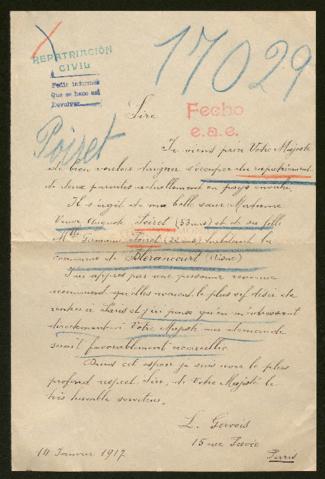 REPATRIACIÓN
CIVIL
Pedir informes
Que se hace así
Devolver
17029
Fecho
e.a.e.
Poiret
Sire
Je viens prier Votre Majesté
de bien vouloir daigner s'occuper du rapatriement
de deux parentes actuellement en pays envahi
Il s'agit de ma belle sœur Madame
Veuve Auguste Poiret (53 ans) et de sa fille
Mlle Germaine Poiret (22 ans) habitant la
commune de Blérancourt (Aisne)
J'ai appris par une personne revenue
récemment qu'elles avaient le plus vif désir de
rentrer à Paris et j'ai pensé qu'en m'adressant
directement à Votre Majesté ma demande
serait favorablement accueillie.
Dans cet espoir je suis avec le plus
profond respect Sire, de Votre Majesté le
très humble serviteur.
L. Gervais
15 rue
Paris
10 Janvier 1917